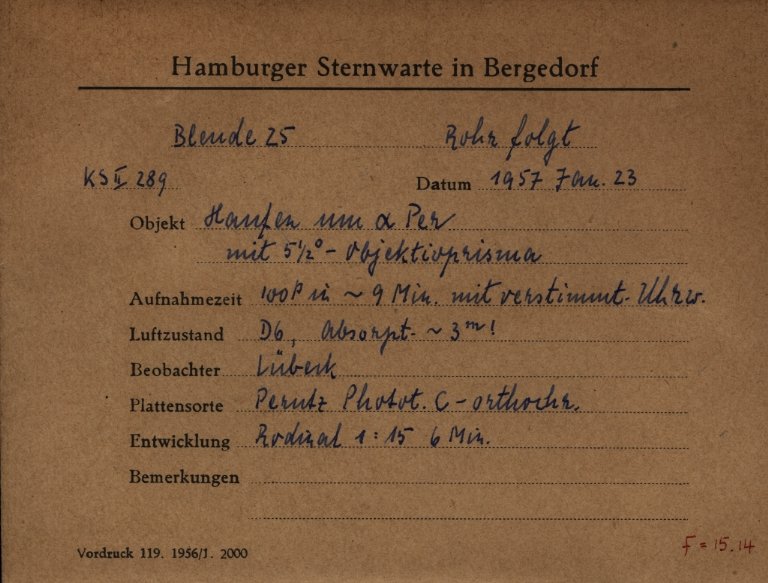 Hamburger Sternwarte in Bergedorf
Blende 25 Rohr folgt
KS II 289 Datum 1957 Jan. 23
Objekt Haufen um α Per
mit 5½° - Objektivprisma
Aufnahmezeit 100P in ~ 9 Min. mit verstimmt. Uhrw.
Luftzustand D6, Absorpt. ~ 3m!
Beobachter Lübeck
Plattensorte Perutz Photot. C - orthochr.
Entwicklung Rodinal 1 : 15 6 Min.
Bemerkungen
Vordruck 119. 1956/1. 2000 F = 15.14